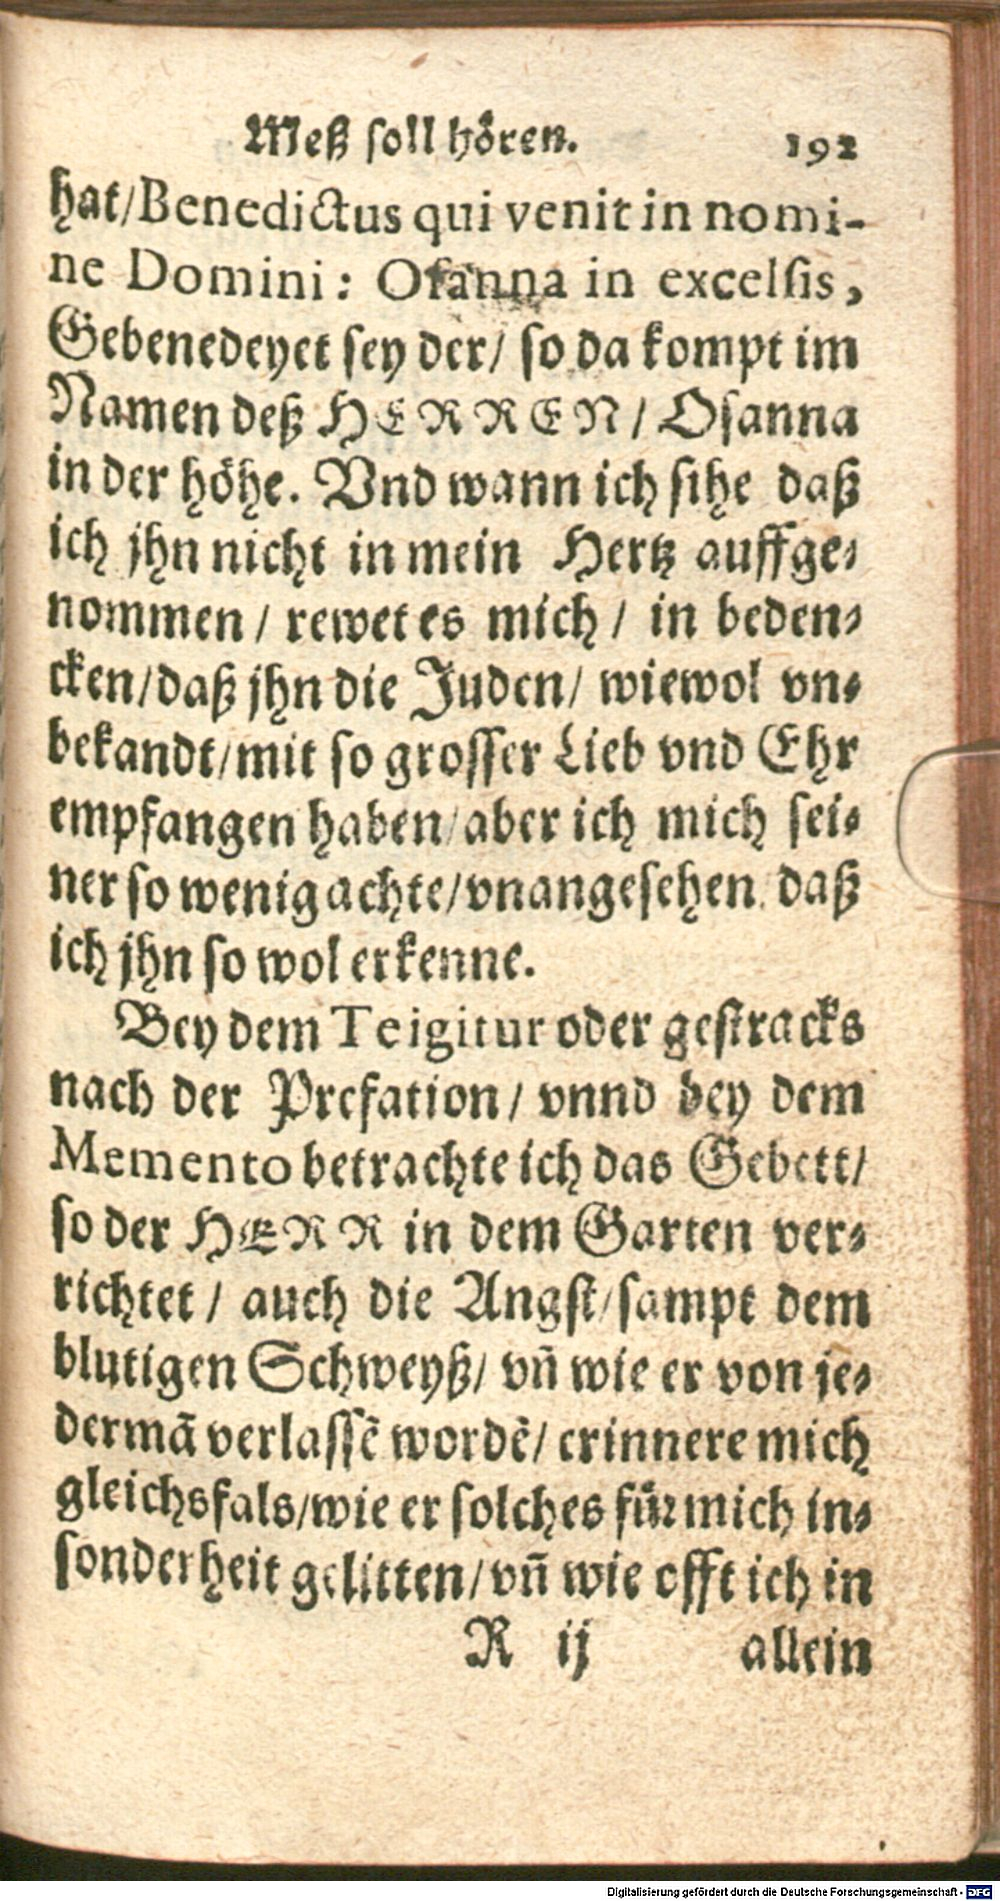 Meß soll hören. 192
hat/Benedictus qui venit in nomi-
ne Domini: Osanna in excelsis,
Gebenedeyet sey der/ so da kompt im
Namen deß HERREN/ Osanna
in der höhe. Vnd wann ich sihe daß
ich jhn nicht in mein Hertz auffge-
nommen/ rewet es mich/ in beden-
cken/daß jhn die Juden/ wiewol vn-
bekandt/mit so grosser Lieb vnd Ehr
empfangen haben/aber ich mich sei-
ner so wenig achte/vnangesehen daß
ich jhn so wol erkenne.
Bey dem Te igitur oder gestracks
nach der Prefation/ vnnd bey dem
Memento betrachte ich das Gebett/
so der HERR in dem Garten ver-
richtet/ auch die Angst/sampt dem
blutigen Schweyß/ vñ wie er von je-
dermã verlassẽ wordẽ/ erinnere mich
gleichsfals/wie er solches für mich in-
sonderheit gelitten/vñ wie offt ich in
R ij allein
Digitalisierung gefördert durch die Deutsche Forschungsgemeinschaft - DFG